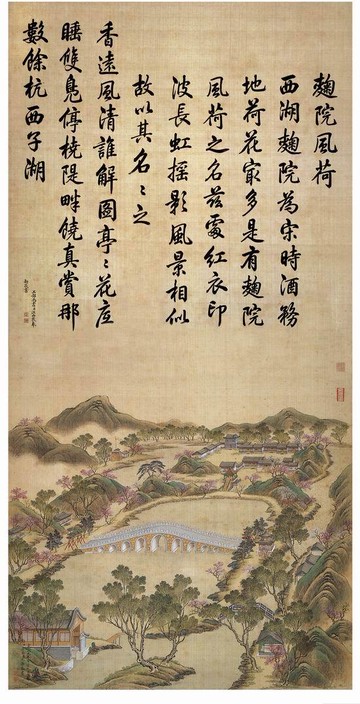 麴院風荷
西湖麴院為宋時酒務
地荷花㝡多是有麴院
風荷之名茲處紅衣印
波長虹搖影風景相似
故以其名〻之
香遠風清誰解圖亭〻花底
睡雙鳧停橈隄畔饒真賞那
數餘杭西子湖